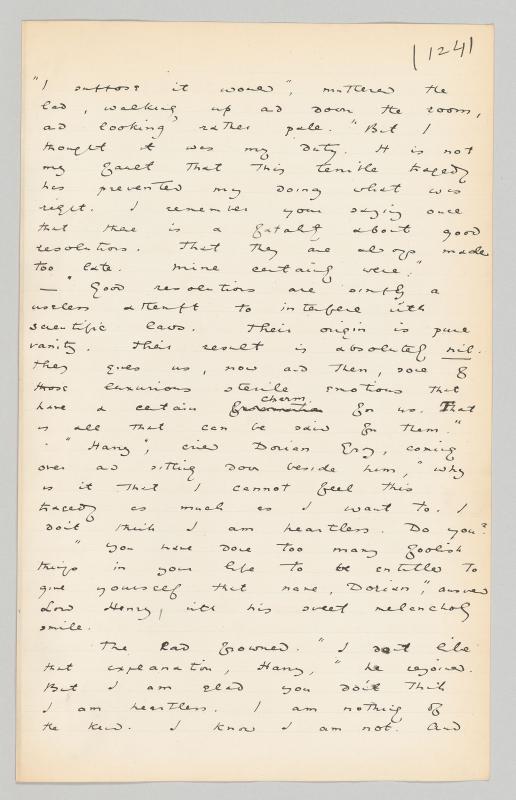 124
"I suppose it would", muttered the
lad, walking up and down the room,
and looking rather pale. "But I
thought it was my duty. It is not
my fault that this terrible tragedy
has prevented my doing what was
right. I remember your saying once
that there is a fatality about good
resolutions. That they are always made
too late. Mine certainly were."
— "Good resolutions are simply a
useless attempt to interfere with
scientific laws. Their origin is pure
vanity. Their result is absolutely nil.
They give us, now and then, some of
those luxurious sterile emotions that
have a certain charm for us. That
is all that can be said for them."
"Harry", cried Dorian Gray, coming
over and sitting down beside him, "why
is it that I cannot feel this
tragedy as much as I want to. I
don't think I am heartless. Do you?
"You have done too many foolish
things in your life to be entitled to
give yourself that name, Dorian", answered
Lord Henry, with his sweet melancholy
smile.
The lad frowned. "I don't like
that explanation, Harry," he rejoined.
But I am glad you don't think
I am heartless. I am nothing of
the kind. I know I am not. And